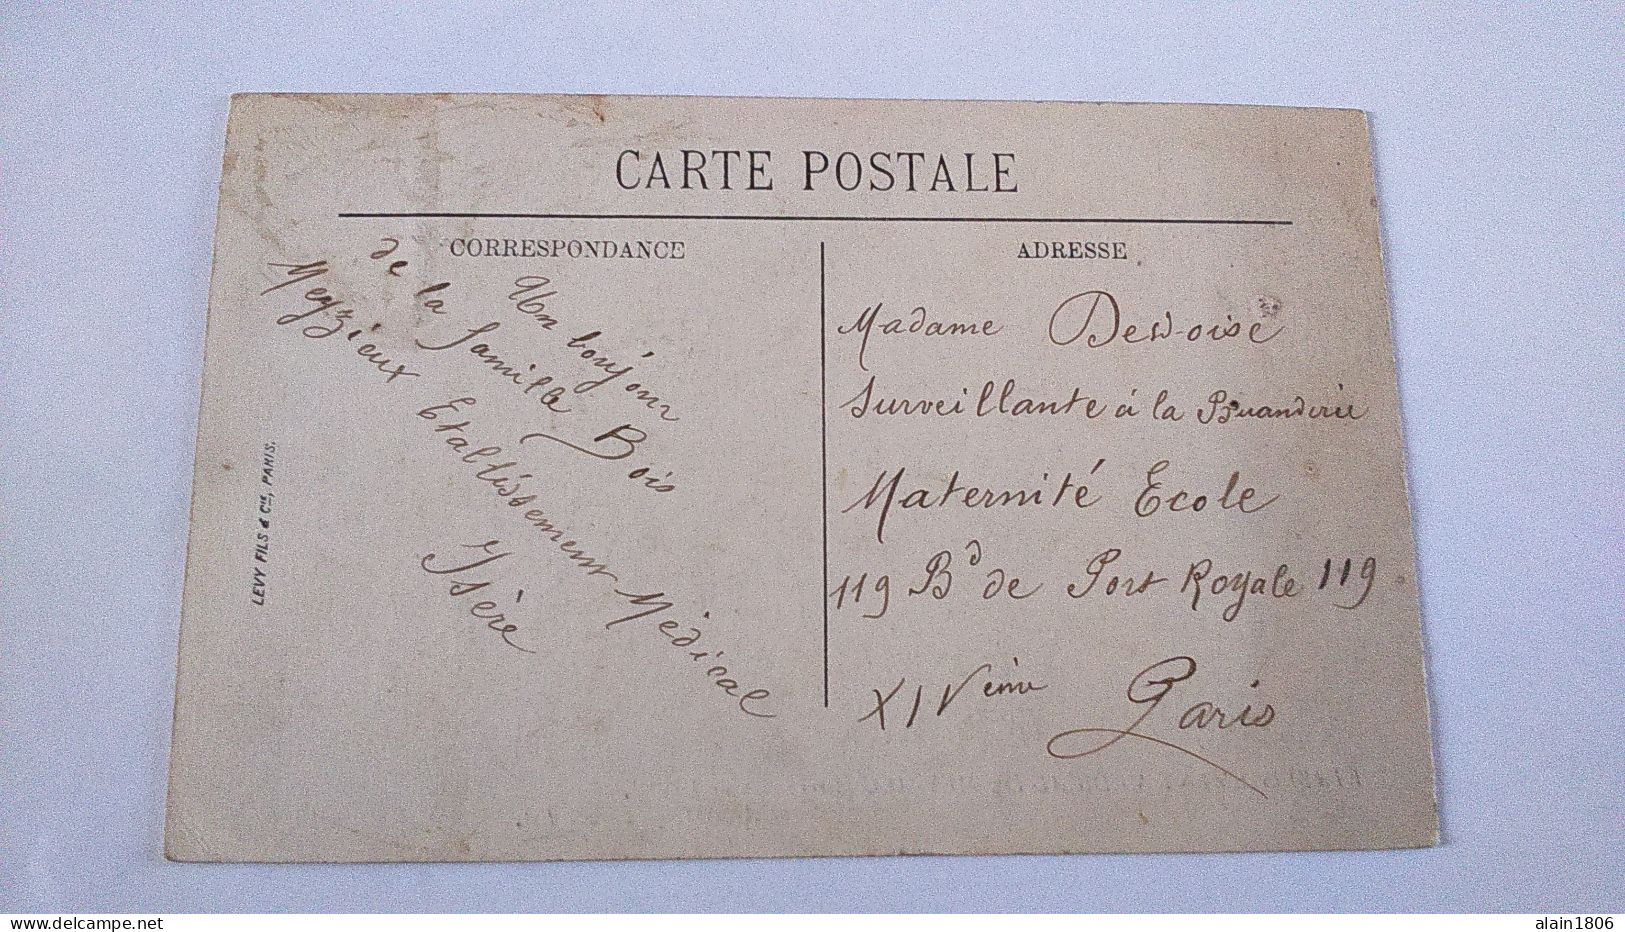 CARTE POSTALE
CORRESPONDANCE
Un bonjour
de la famille Bois
Meyzieux Etablissement Médical
Isère
LEVY FILS & Cie, PARIS.
ADRESSE
Madame
Surveillante à la Buanderie
Maternité Ecole
119 Bd de Port Royale 119
XIVème Paris
alain1806